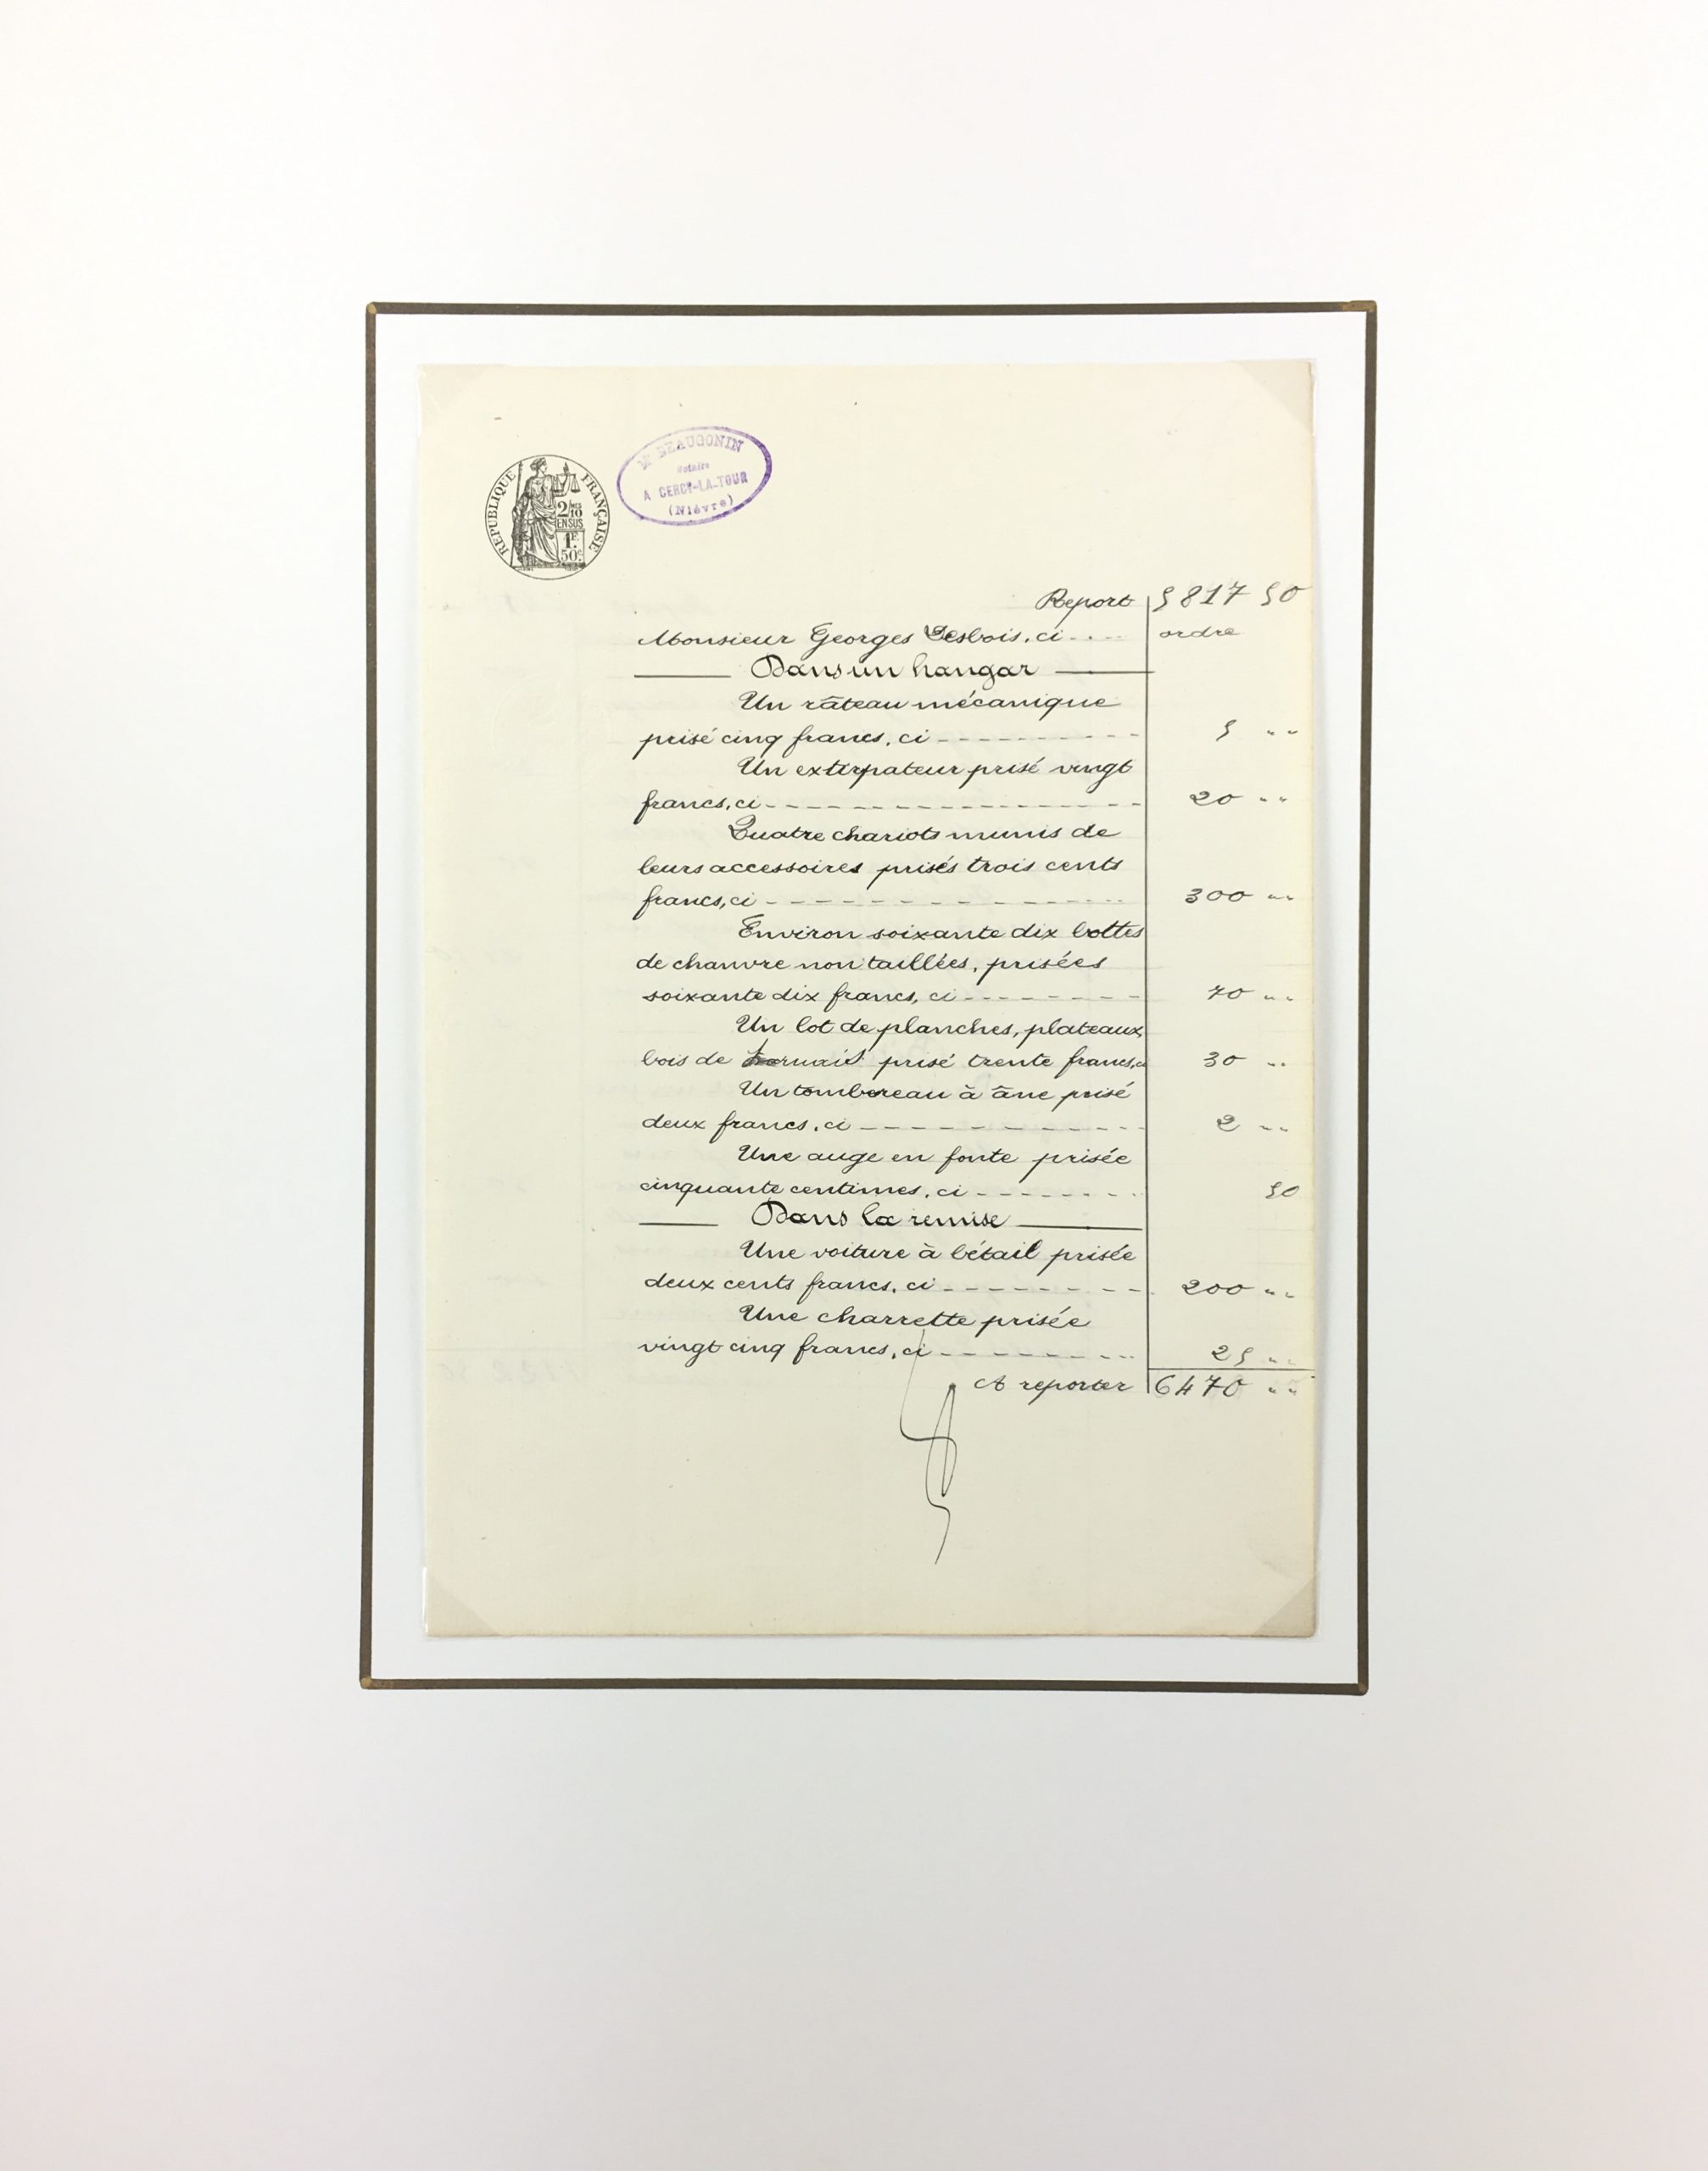 RÉPUBLIQUE FRANÇAISE
2/10
EN SUS
1F.
50c.
Me BEAUGONIN
Notaire
A CERCY-LA-TOUR
(Nièvre)
Report 5817 50
Monsieur Georges Desbois, ci ordre
Dans un hangar
Un râteau mécanique
prisé cinq francs, ci 5 "
Un extirpateur prisé vingt
francs, ci 20 "
Quatre chariots munis de
leurs accessoires prisés trois cents
francs, ci 300 "
Environ soixante dix bottes
de chanvre non taillées, prisées
soixante dix francs, ci 70 "
Un lot de planches, plateaux,
bois de prisé trente francs, ci 30 "
Un tombereau à âne prisé
deux francs, ci 2 "
Une auge en fonte prisée
cinquante centimes, ci 50
Dans la remise
Une voiture à bétail prisée
deux cents francs, ci 200 "
Une charrette prisée
vingt cinq francs, ci 25 "
A reporter 6470 "